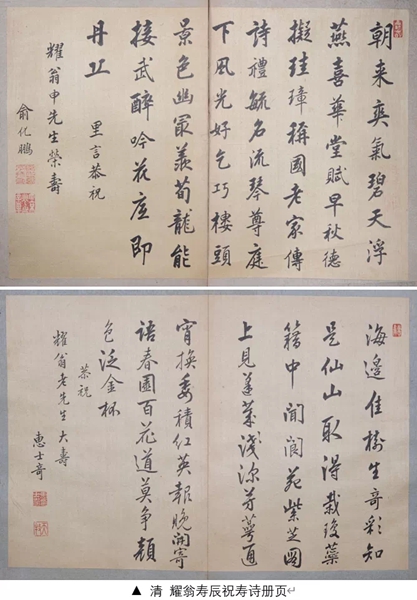 朝来爽氣碧天浮
燕喜華堂賦早秋德
擬珪璋稱國老家傳
詩禮毓名流琴尊庭
下風光好乞巧樓頭
景色幽冣羨荀龍能
接武醉吟花底即
丹丘
里言恭祝
耀翁申先生榮壽
俞化鵬
海邊佳樹生奇彩知
是仙山取得栽瓊蘂
籍中聞閬苑紫芝圖
上見蓬萊淺深芳萼通
宵換委積紅英報晚開寄
語春園百花道莫争顏
色泛金杯
恭祝
耀翁老先生大壽
惠士奇
▲ 清 耀翁寿辰祝寿诗册页